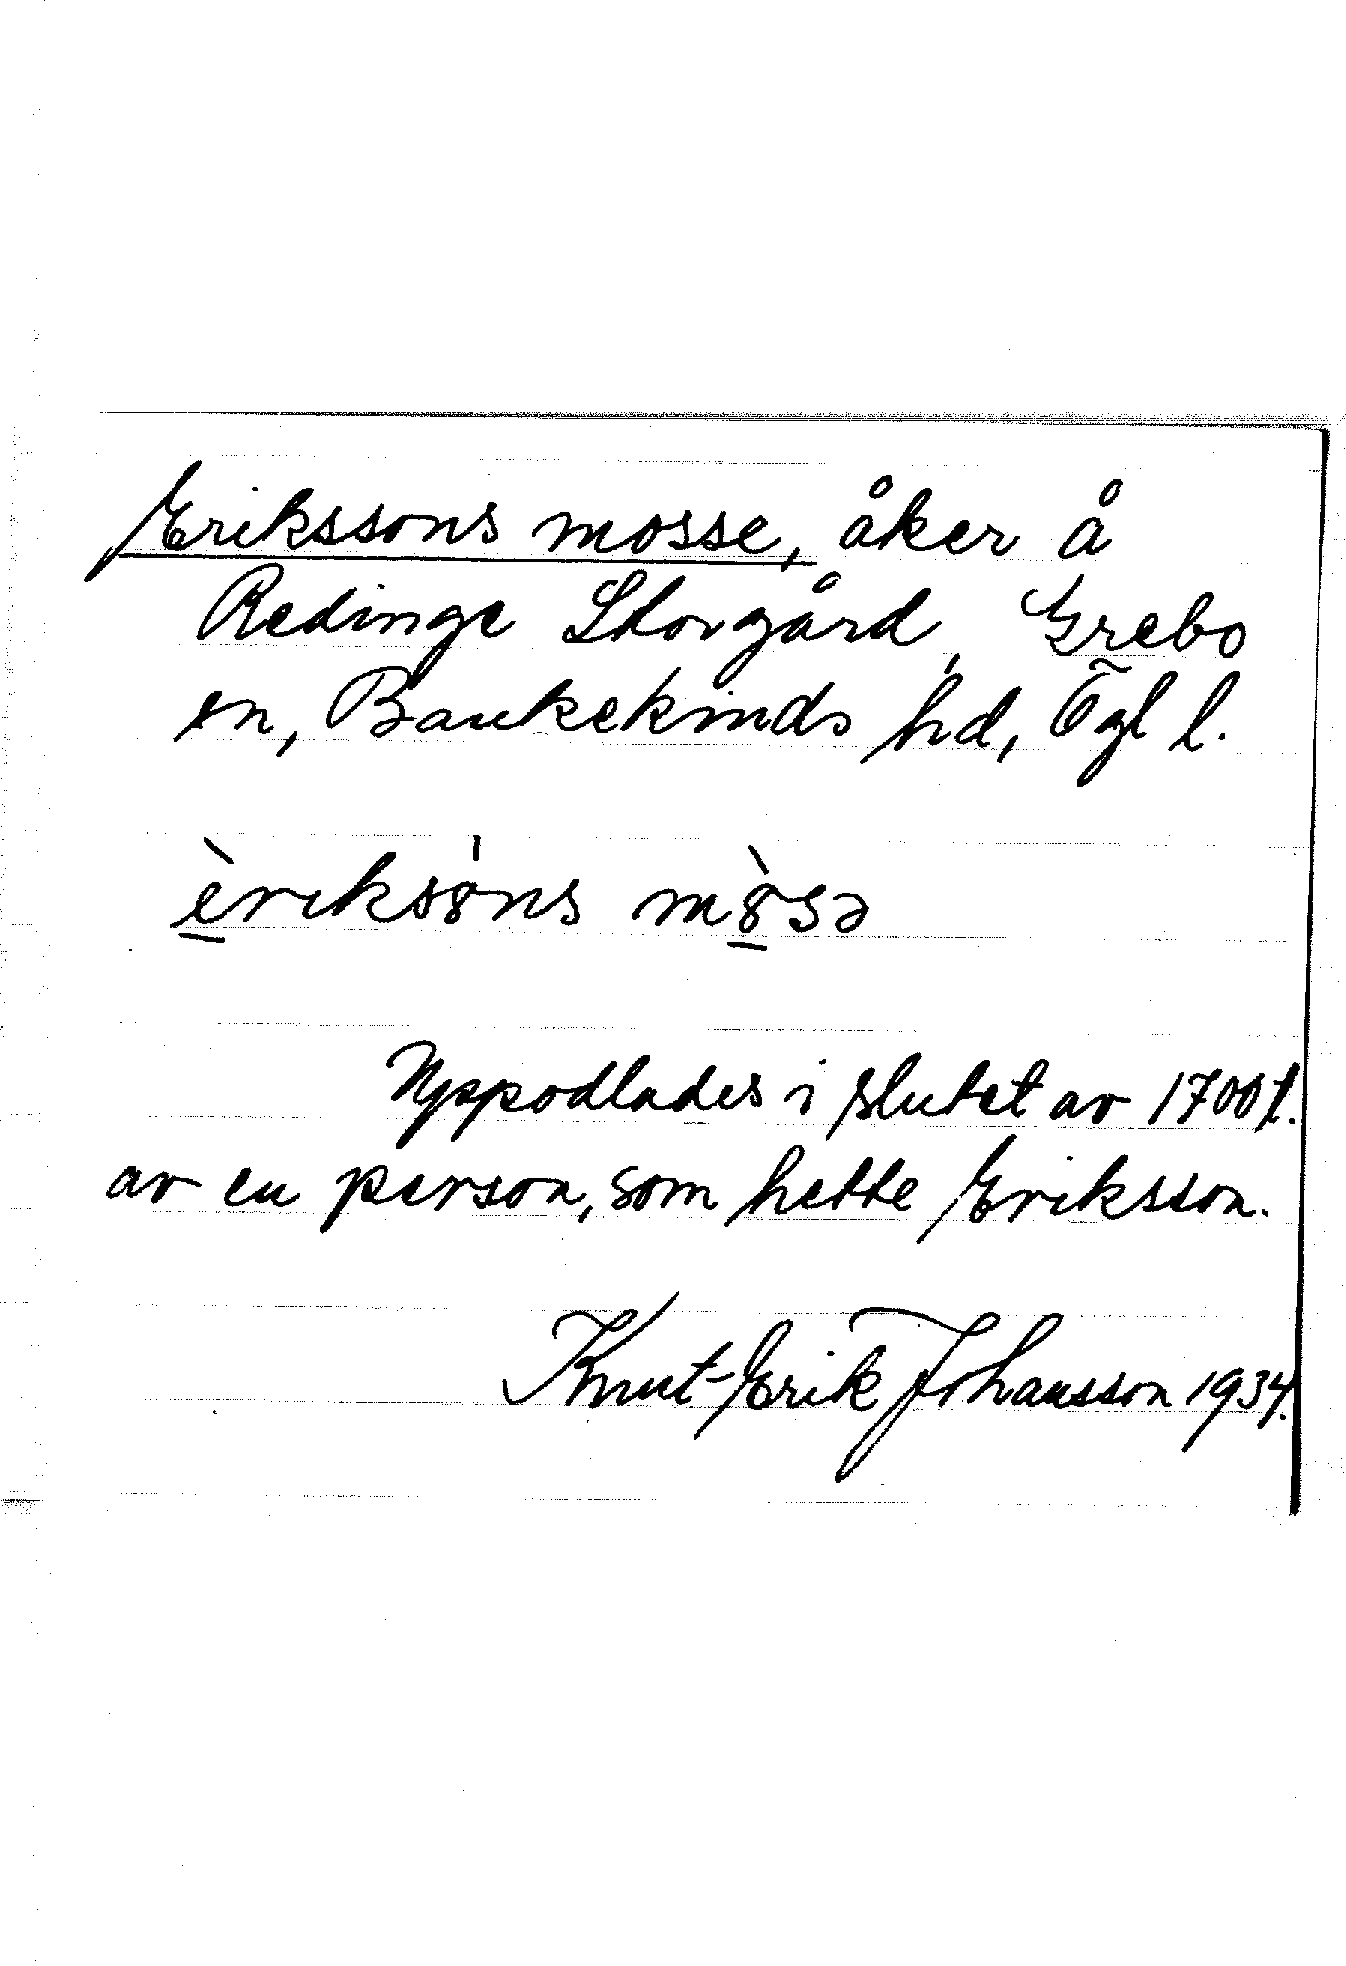 Erikssons mosse, åker å
Redinge Storgård, Grebo
sn, Bankekinds hd, Ögl l.
èriksȯns mòsə
Uppodlades i slutet av 1700 t.
av en person, som hette Eriksson.
Knut-Erik Johansson 1934.